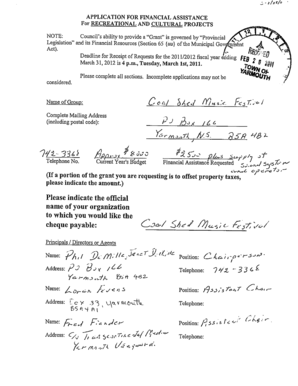 APPLICATION FOR FINANCIAL ASSISTANCE
For RECREATIONAL AND CULTURAL PROJECTS
NOTE: Council's ability to provide a "Grant" is governed by "Provincial
Legislation" and its Financial Resources (Section 65 (au) of the Municipal Government
Act).
Deadline for Receipt of Requests for the 2011/2012 fiscal year ending
March 31, 2012 is 4 p.m., Tuesday, March 1st, 2011.
RECEIVED
FEB 28 2011
TOWN OF
YARMOUTH
Please complete all sections. Incomplete applications may not be
considered.
Name of Group: Coal Shed Music Festival
Complete Mailing Address
(including postal code): PO Box 166
Yarmouth, N.S. B5A 4B2
742-3368 Approx $8000 $2500 plus supply of
Telephone No. Current Year's Budget Financial Assistance Requested Sound System
and operator
(If a portion of the grant you are requesting is to offset property taxes,
please indicate the amount.)
Please indicate the official
name of your organization
to which you would like the
cheque payable: Coal Shed Music Festival
Principals / Directors or Agents
Name: Phil Position: Chairperson
Address: PO Box 166 Telephone: 742-3368
Yarmouth B5A 4B2
Name: Position: Assistant Chair
Address: Box 39, Yarmouth Telephone:
Name: Fred Position: Assistant Chair
Address: C/o Telephone:
Yarmouth Vanguard.